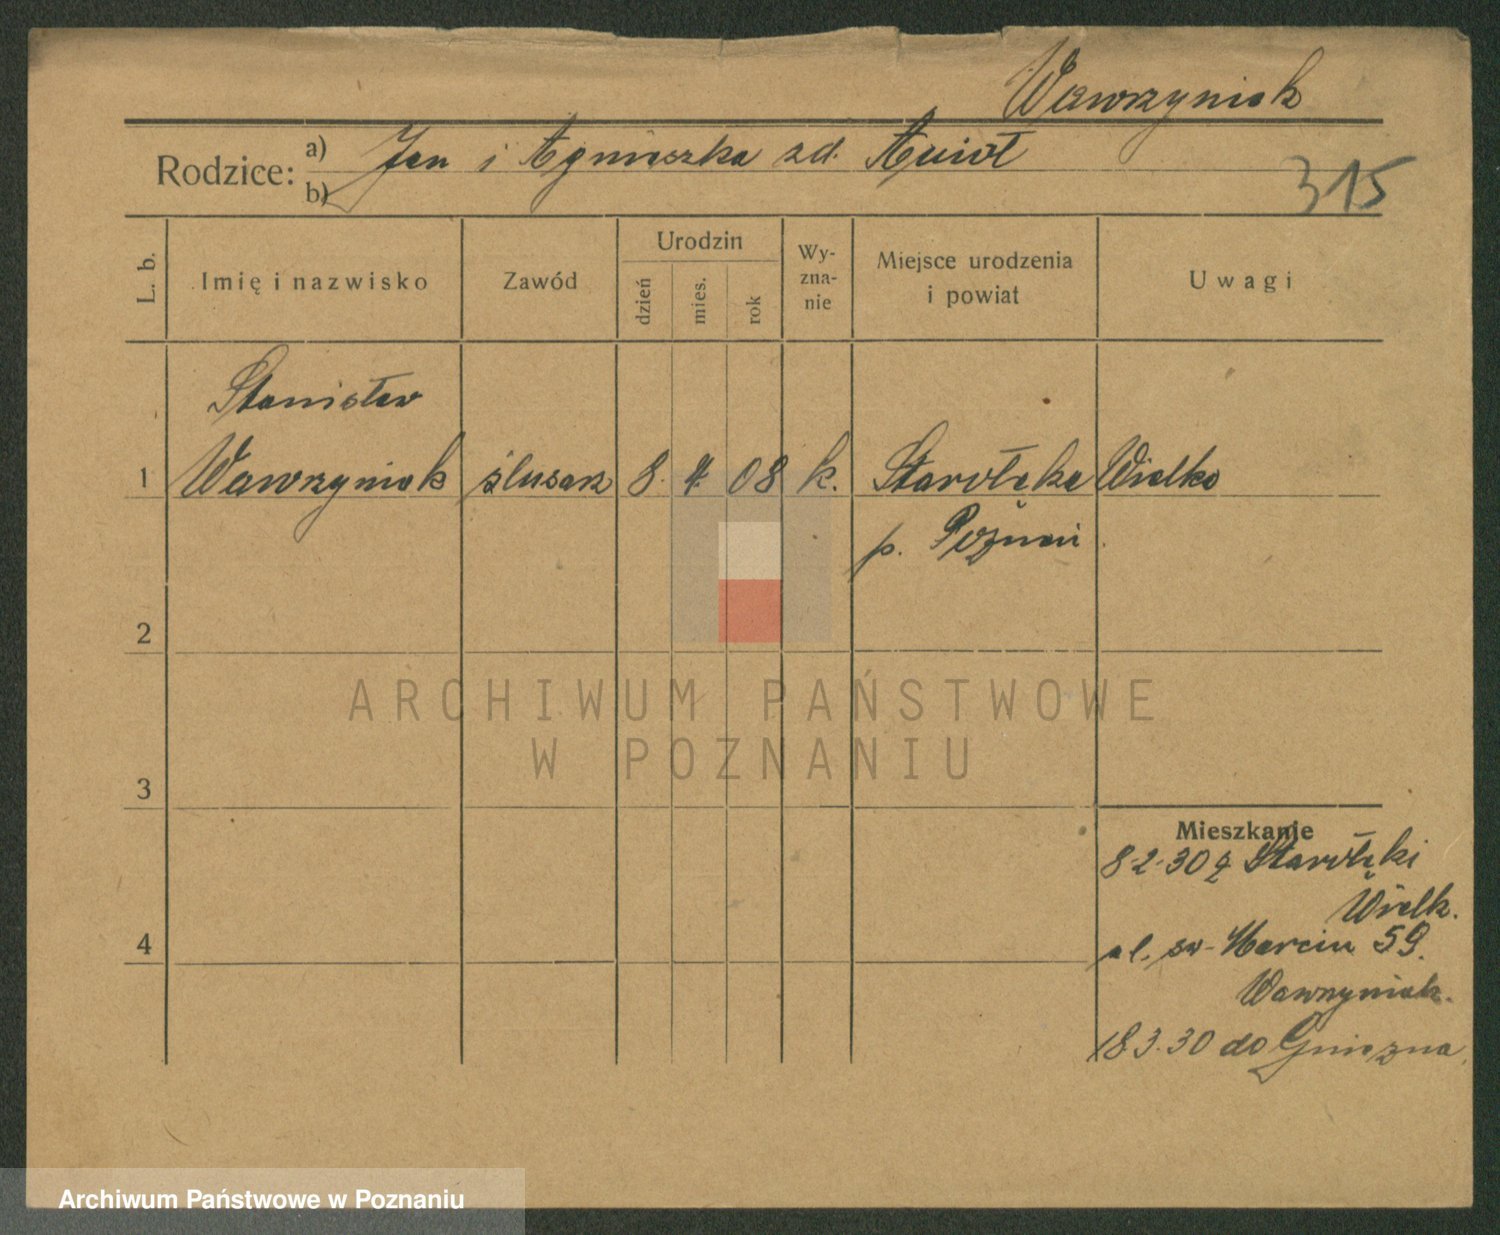 Wawrzyniak
Rodzice: a) Jan i Agnieszka zd. Anioł
b)
315
L. b.
Imię i nazwisko
Zawód
Urodzin
dzień
mies.
rok
Wy-
zna-
nie
Miejsce urodzenia
i powiat
Uwagi
Stanisław
1 Wawrzyniak ślusarz 8. 4 08 k. Starołęka Wielka
p. Poznań
2
ARCHIWUM PAŃSTWOWE
W POZNANIU
3
Mieszkanie
8-2-30 z Starołęki
Wielk.
4
ul. św. Marcin 59.
Wawrzyniak.
18 3.30 do Gniezna.
Archiwum Państwowe w Poznaniu